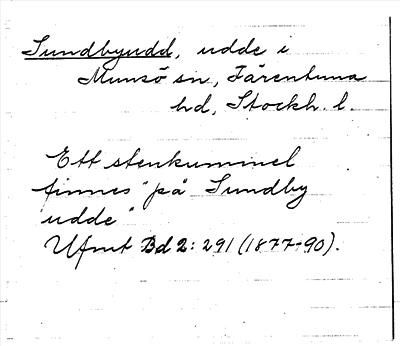 Sundbyudd, udde i
Munsö sn, Färentuna
hd, Stockh. l.
Ett stenkummel
finnes "på Sundby
udde"
Ufmt Bd 2: 291 (1877-90).